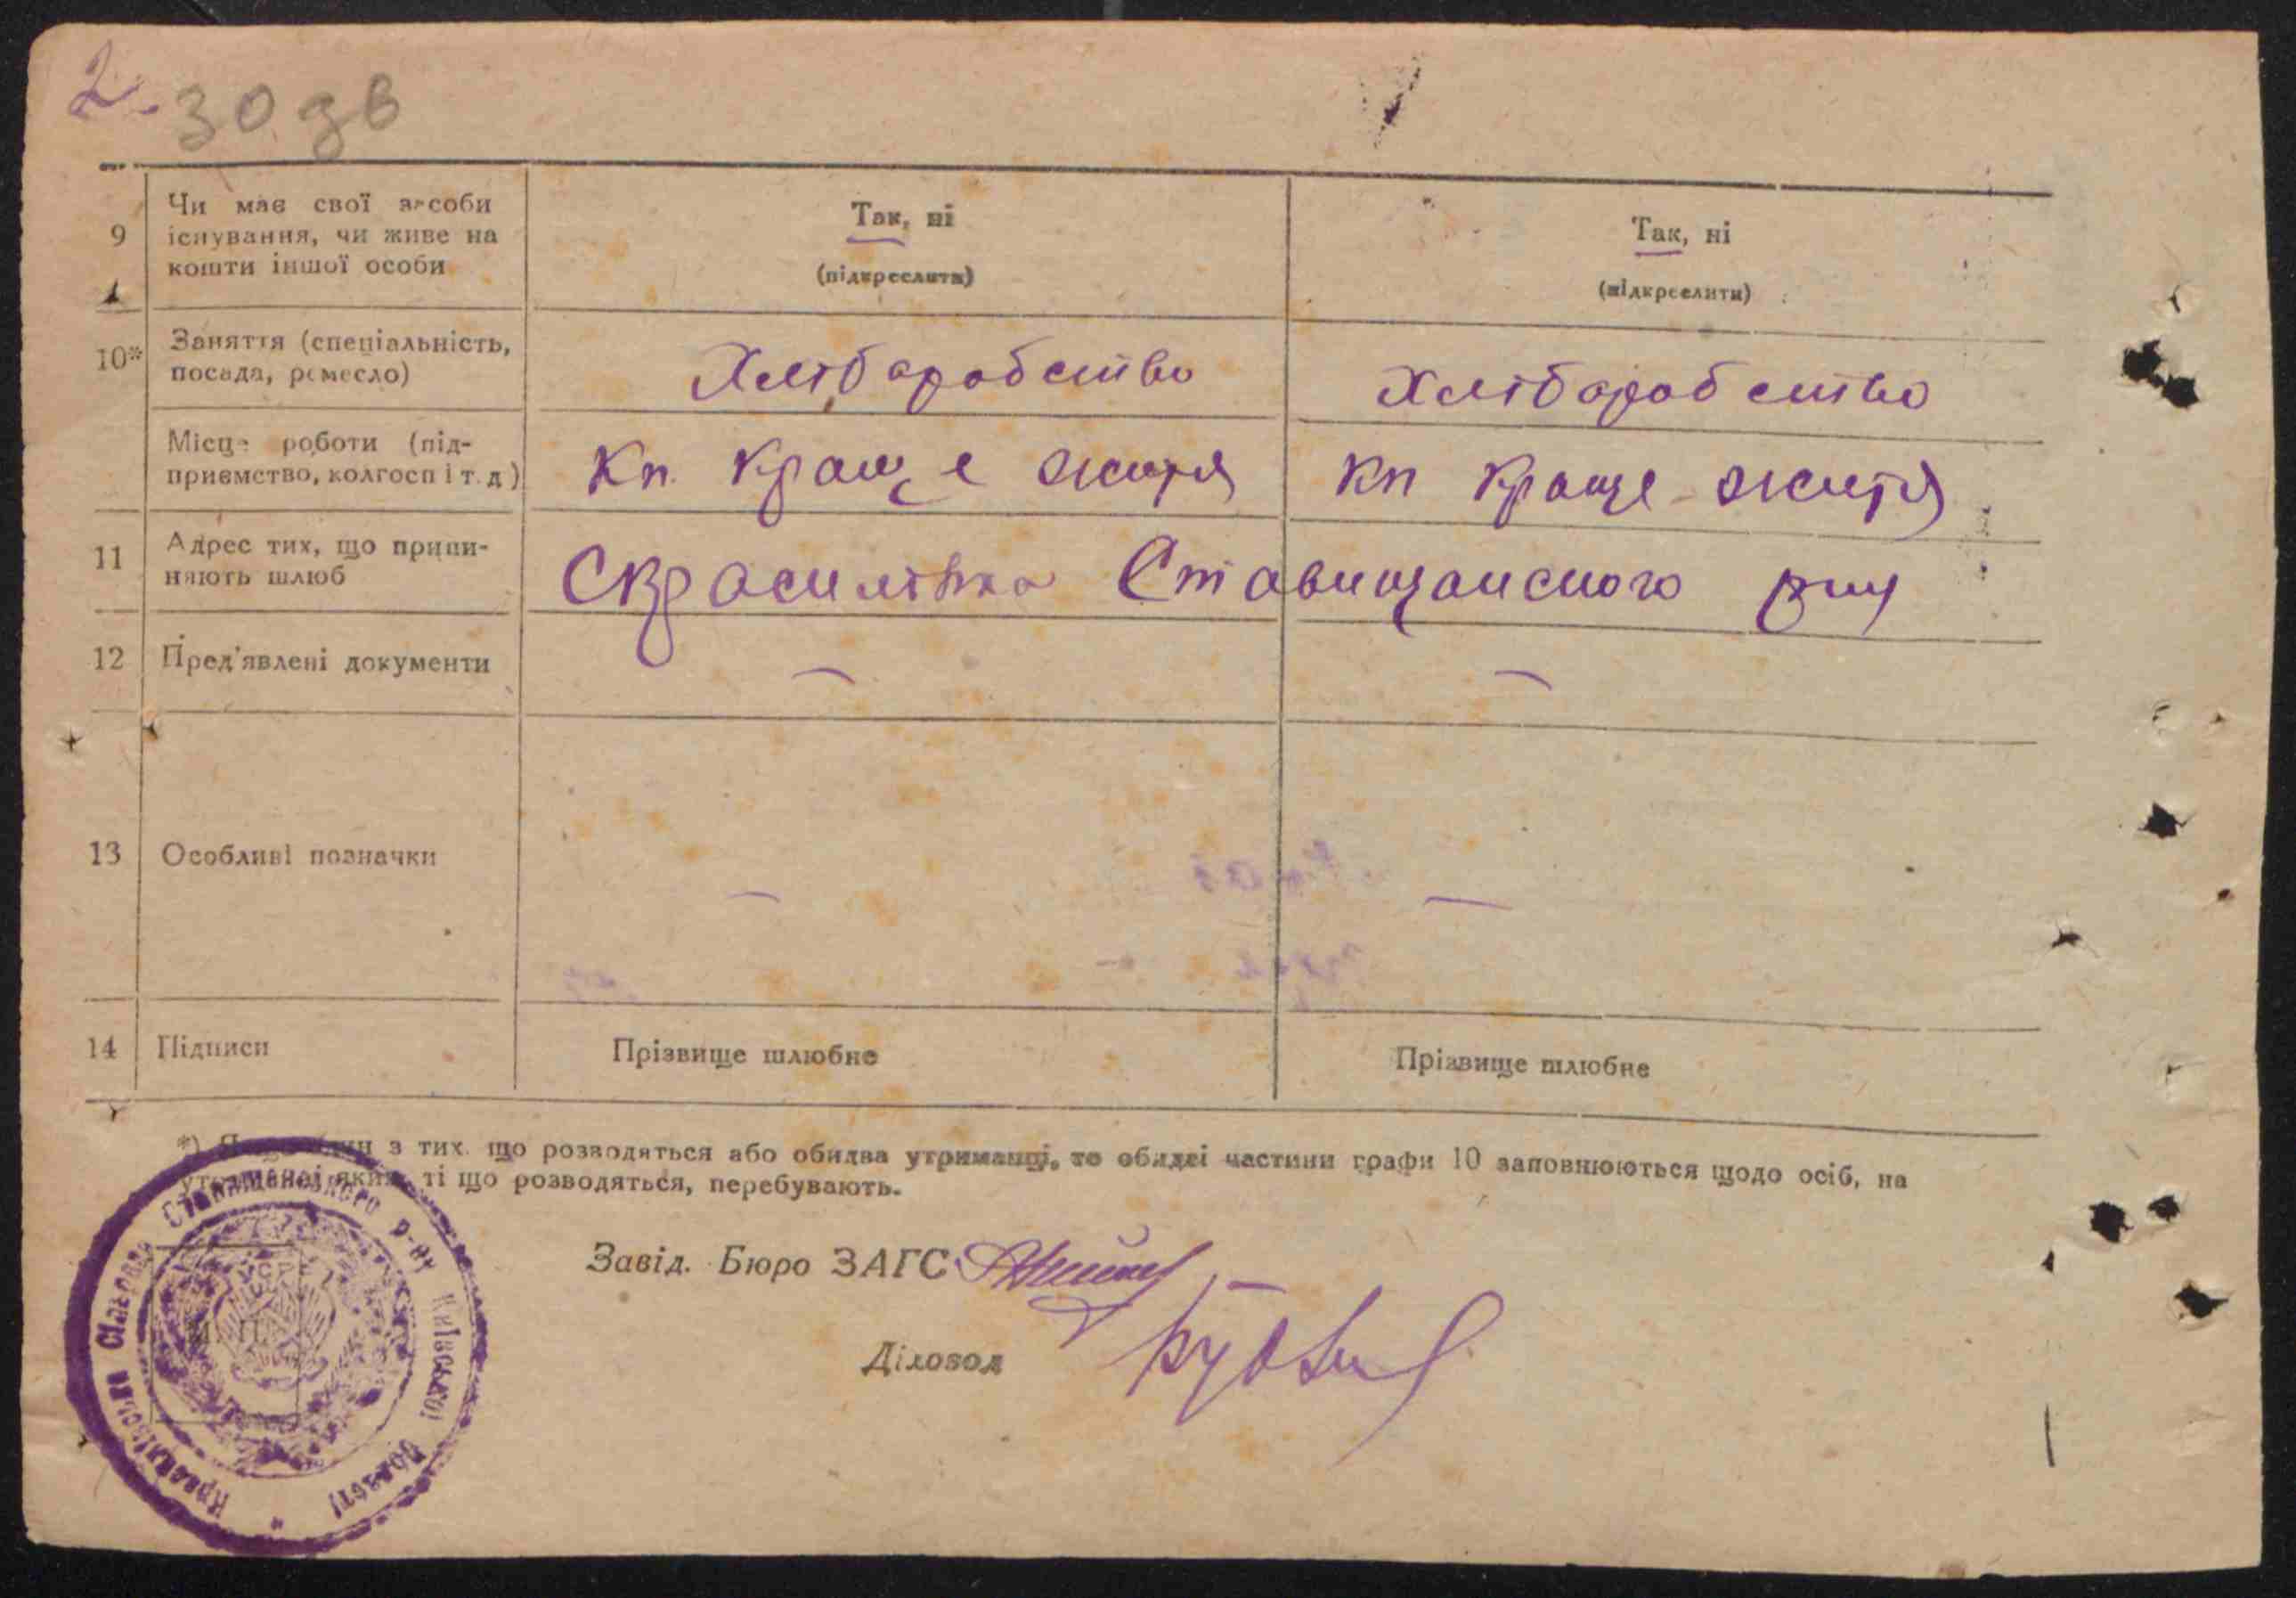 2. 30 дв
9 Чи має свої засоби існування, чи живе на кошти іншої особи
Так, ні
(підкреслити)
Так, ні
(підкреслити)
10* Заняття (спеціальність, посада, ремесло)
Хліборобство
Хліборобство
Місце роботи (підприємство, колгосп і т. д)
Кп. Краще життя
Кп Краще життя
11 Адрес тих, що припиняють шлюб
С Красилівка Ставищанского р-ну
12 Пред'явлені документи
–
–
13 Особливі позначки
–
–
14 Підписи
Прізвище шлюбне
Прізвище шлюбне
*) Якщо один з тих. що розводяться або обидва утриманці, то обидві частини графи 10 заповнюються щодо осіб, на
утриманні яких ті що розводяться, перебувають.
Завід. Бюро ЗАГС
Діловод
М. П.
Красилівська Сільрада Ставищанського р-ну Київської Області